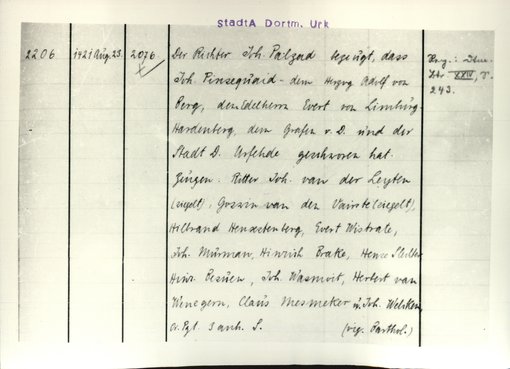 StadtA Dortm. Urk
2206 1421 Aug. 23. 2076
Der Richter Joh. Palzad bezeugt, dass
Joh. Pinsequaid - dem Herzog Adolf von
Berg, dem Edelherrn Evert von Limburg-
Hardenberg, dem Grafen v. D. und der
Stadt D. Urfehde geschworen hat.
Zeugen. Ritter Joh. van der Leyten
(siegelt), Goswin van den Vairste (siegelt),
Hillbrand Henxstenberg, Evert Wistrate,
Joh. Murman, Hinrich Brake,
Hinr. Joh. Wasmoit, Herbert van
Claus Mesmeker u. Joh.
Or. Pgt. 3 anh. S.
243.